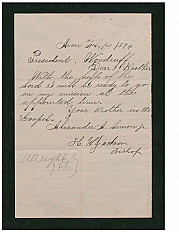 Avon Feb, 14 1894
President, Woodruff
Dear Brother
With the help of the
Lord I will be ready to go
on my mission at the
appointed time.
Your Brother in the
Gospel.
Alexander A.
H. W. Jackson
Bishop
All right
J. F. S.